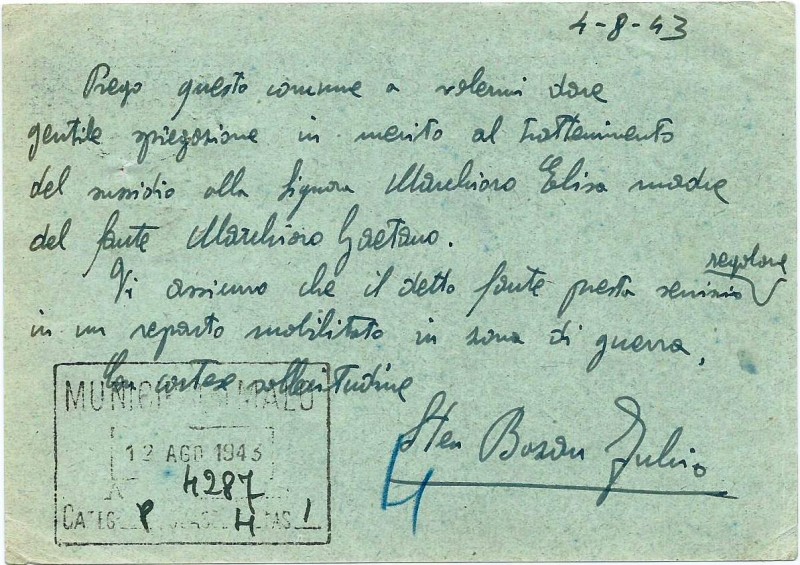 4-8-43
Prego questo comune a volermi dare
gentile spiegazione in merito al trattenimento
del sussidio alla Signora Marchioro Elisa madre
del fante Marchioro Gaetano.
Vi assicuro che il detto fante presta servizio regolare
in un reparto mobilitato in zona di guerra,
Con cortese sollecitudine
Sten Bosan Julio
MUNICIPIO MALO
12 AGO 1943
4287
CATEG 8 CLASSE 4 FAS 1
4